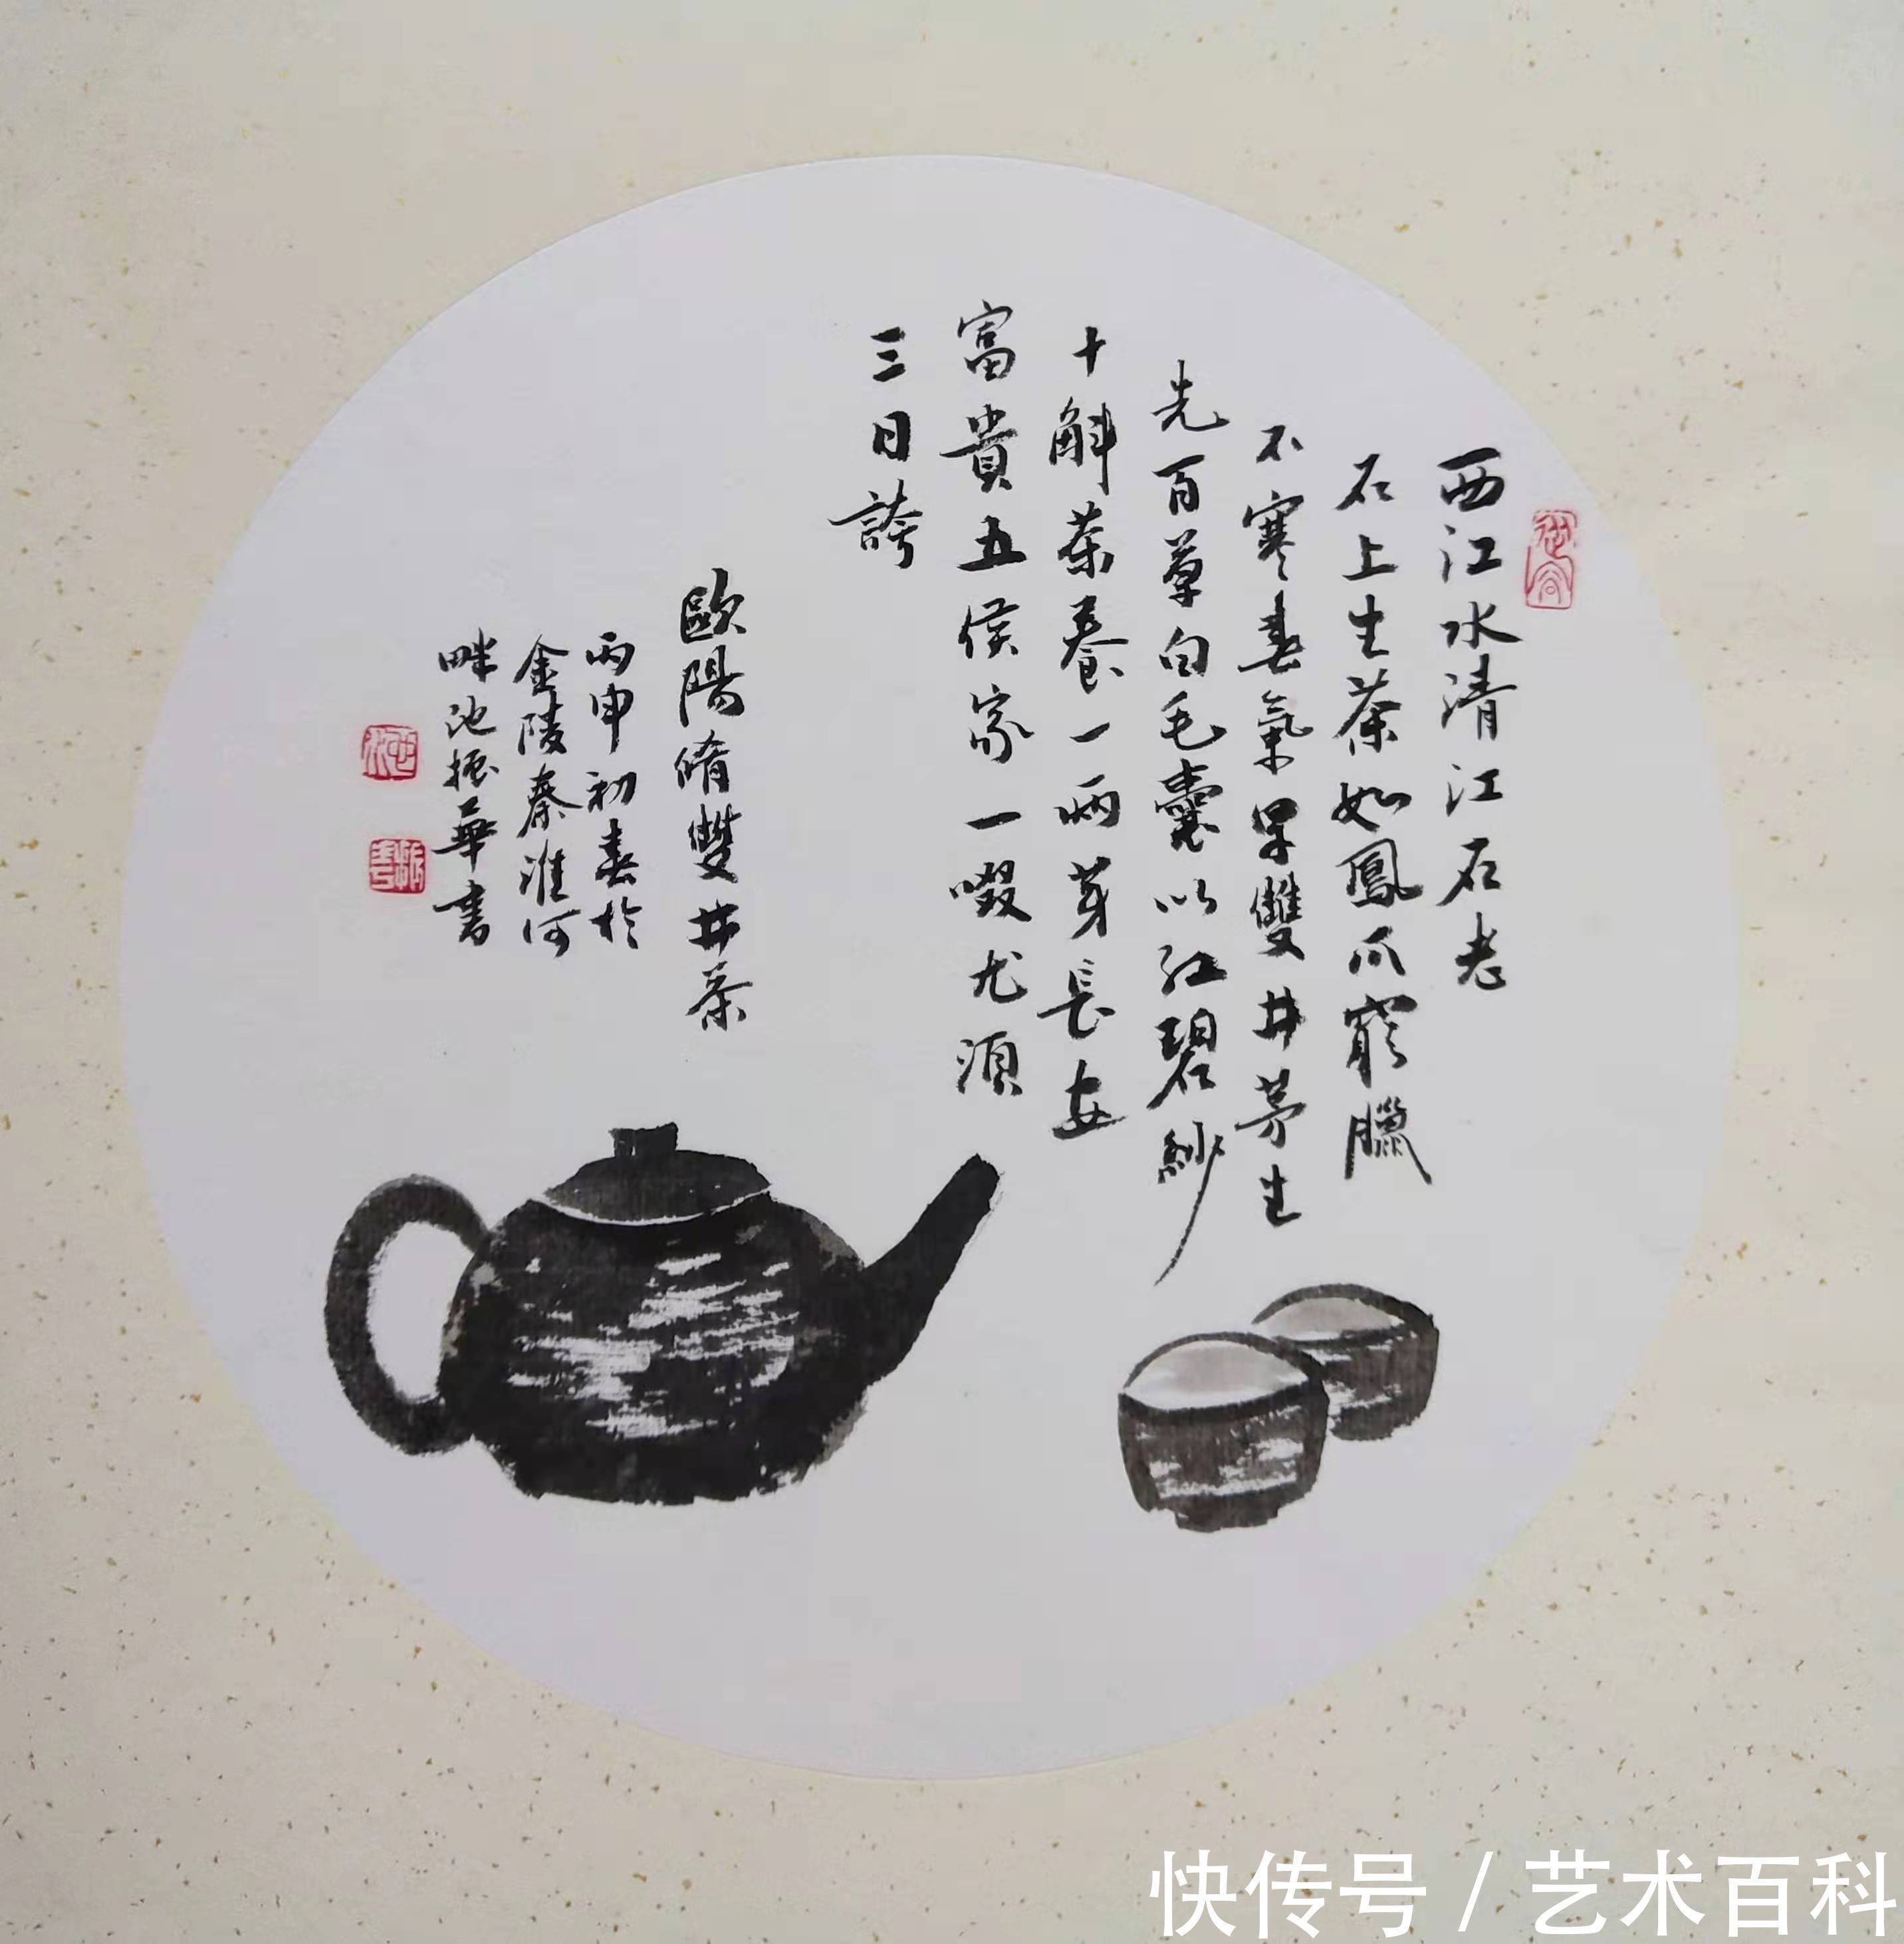 西江水清江石老
石上生茶如鳳爪窮臘
不寒春氣早雙井芽生
先百草白毛囊以紅碧紗
十斛茶養一兩芽長安
富貴五侯家一啜尤須
三日誇
歐陽脩雙井茶
丙申初春於
金陵秦淮河
畔池振華書
快传号 / 艺术百科